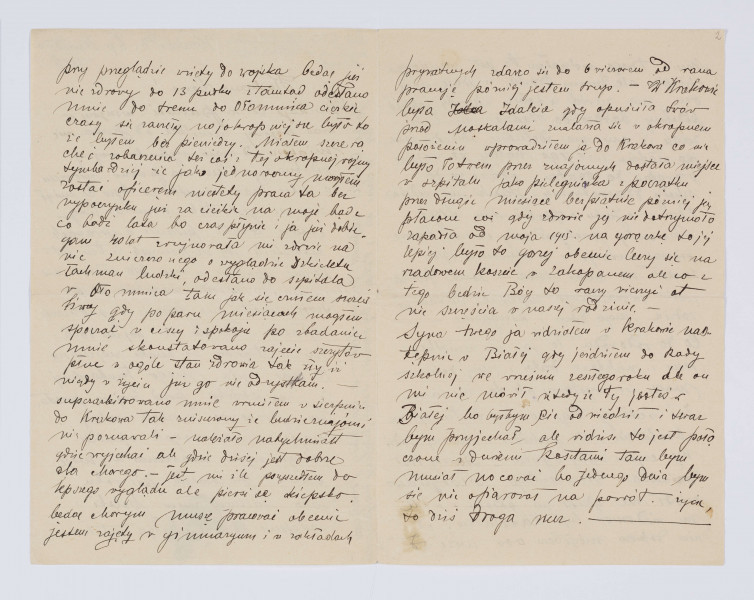 przy przeglądzie wzięty do wojska będąc już
nie zdrowy do 13 pułku stamtąd odesłano
mnie do trenu do Ołomuńca ciężkie
czasy się zaczęły najokropniejsze było to
że byłem bez pieniędzy. Miałem szczerą
chęć zobaczenia się i tej okropnej wojny
tembardziej że jako jednoroczny mogłem
zostać oficerem niestety praca ta bez
wypoczynku już za ciężka na moje bądź
co bądź lata bo czas płynie i ja już dobie-
gam 40 lat zrujnowała mi zdrowie na
nic zniszczonego o wyglądzie szkieletu
łachman ludzki, odesłano do szpitala
w Ołomuńcu tam jak się czułem
gdy po paru miesiącach mogłem
spocząć w ciszy i spokoju po zbadaniu
mnie skonstatowano zajęcie szczytów
płuc w ogóle stan zdrowia tak zły iż
nigdy w życiu już go nie odzyskam. —
superarbitrowano mnie wróciłem w sierpniu
do Krakowa tak zmieniony że ludzie znajomi
nie poznawali — należało natychmiast
gdzieś wyjechać ale gdzie dzisiaj jest dobrze
dla chorego. — Jest mi ile przyszedłem do
lepszego wyglądu ale piersi są kiepsko.
będąc chorym muszę pracować obecnie
jestem zajęty w gimnazyum i w zakładach
2
prywatnych zdarza się do 6 wieczorem od rana
pracuję później jestem trup. — W Krakowie
była Zaalcia gdy opuściła Lwów
przed Moskalami znalazła się w okropnem
położeniu wprowadziłem ją do Krakowa co nie
było łatwem przez znajomych dostała miejsce
w szpitalu jako pielęgniarka z początku
przez drugie miesiące bezpłatnie później jej
płacono coś gdy zdrowie jej nie dotrzymało
zapadła od maja 1915. na gorączkę to jej
lepiej było to gorzej obecnie leczy się na
rządowym koszcie w Zakopanem ale co z
tego będzie Bóg to raczy wiedzieć ot
nie szczęścia w naszej rodzinie. —
Syna twego ja widziałem w Krakowie nas-
tępnie w Białej gdy jeździłem do Rady
szkolnej we wrześniu zeszłego roku ale on
mi nie mówił wtedy że ty jesteś w
Białej bo byłbym Cię odwiedził i teraz
bym przyjechał, ale widzisz to jest połą
czone z dużemi kosztami tam bym
musiał nocować bo jednego dnia bym
się nie ofiarował na powrót.
to dziś Droga nuż. —